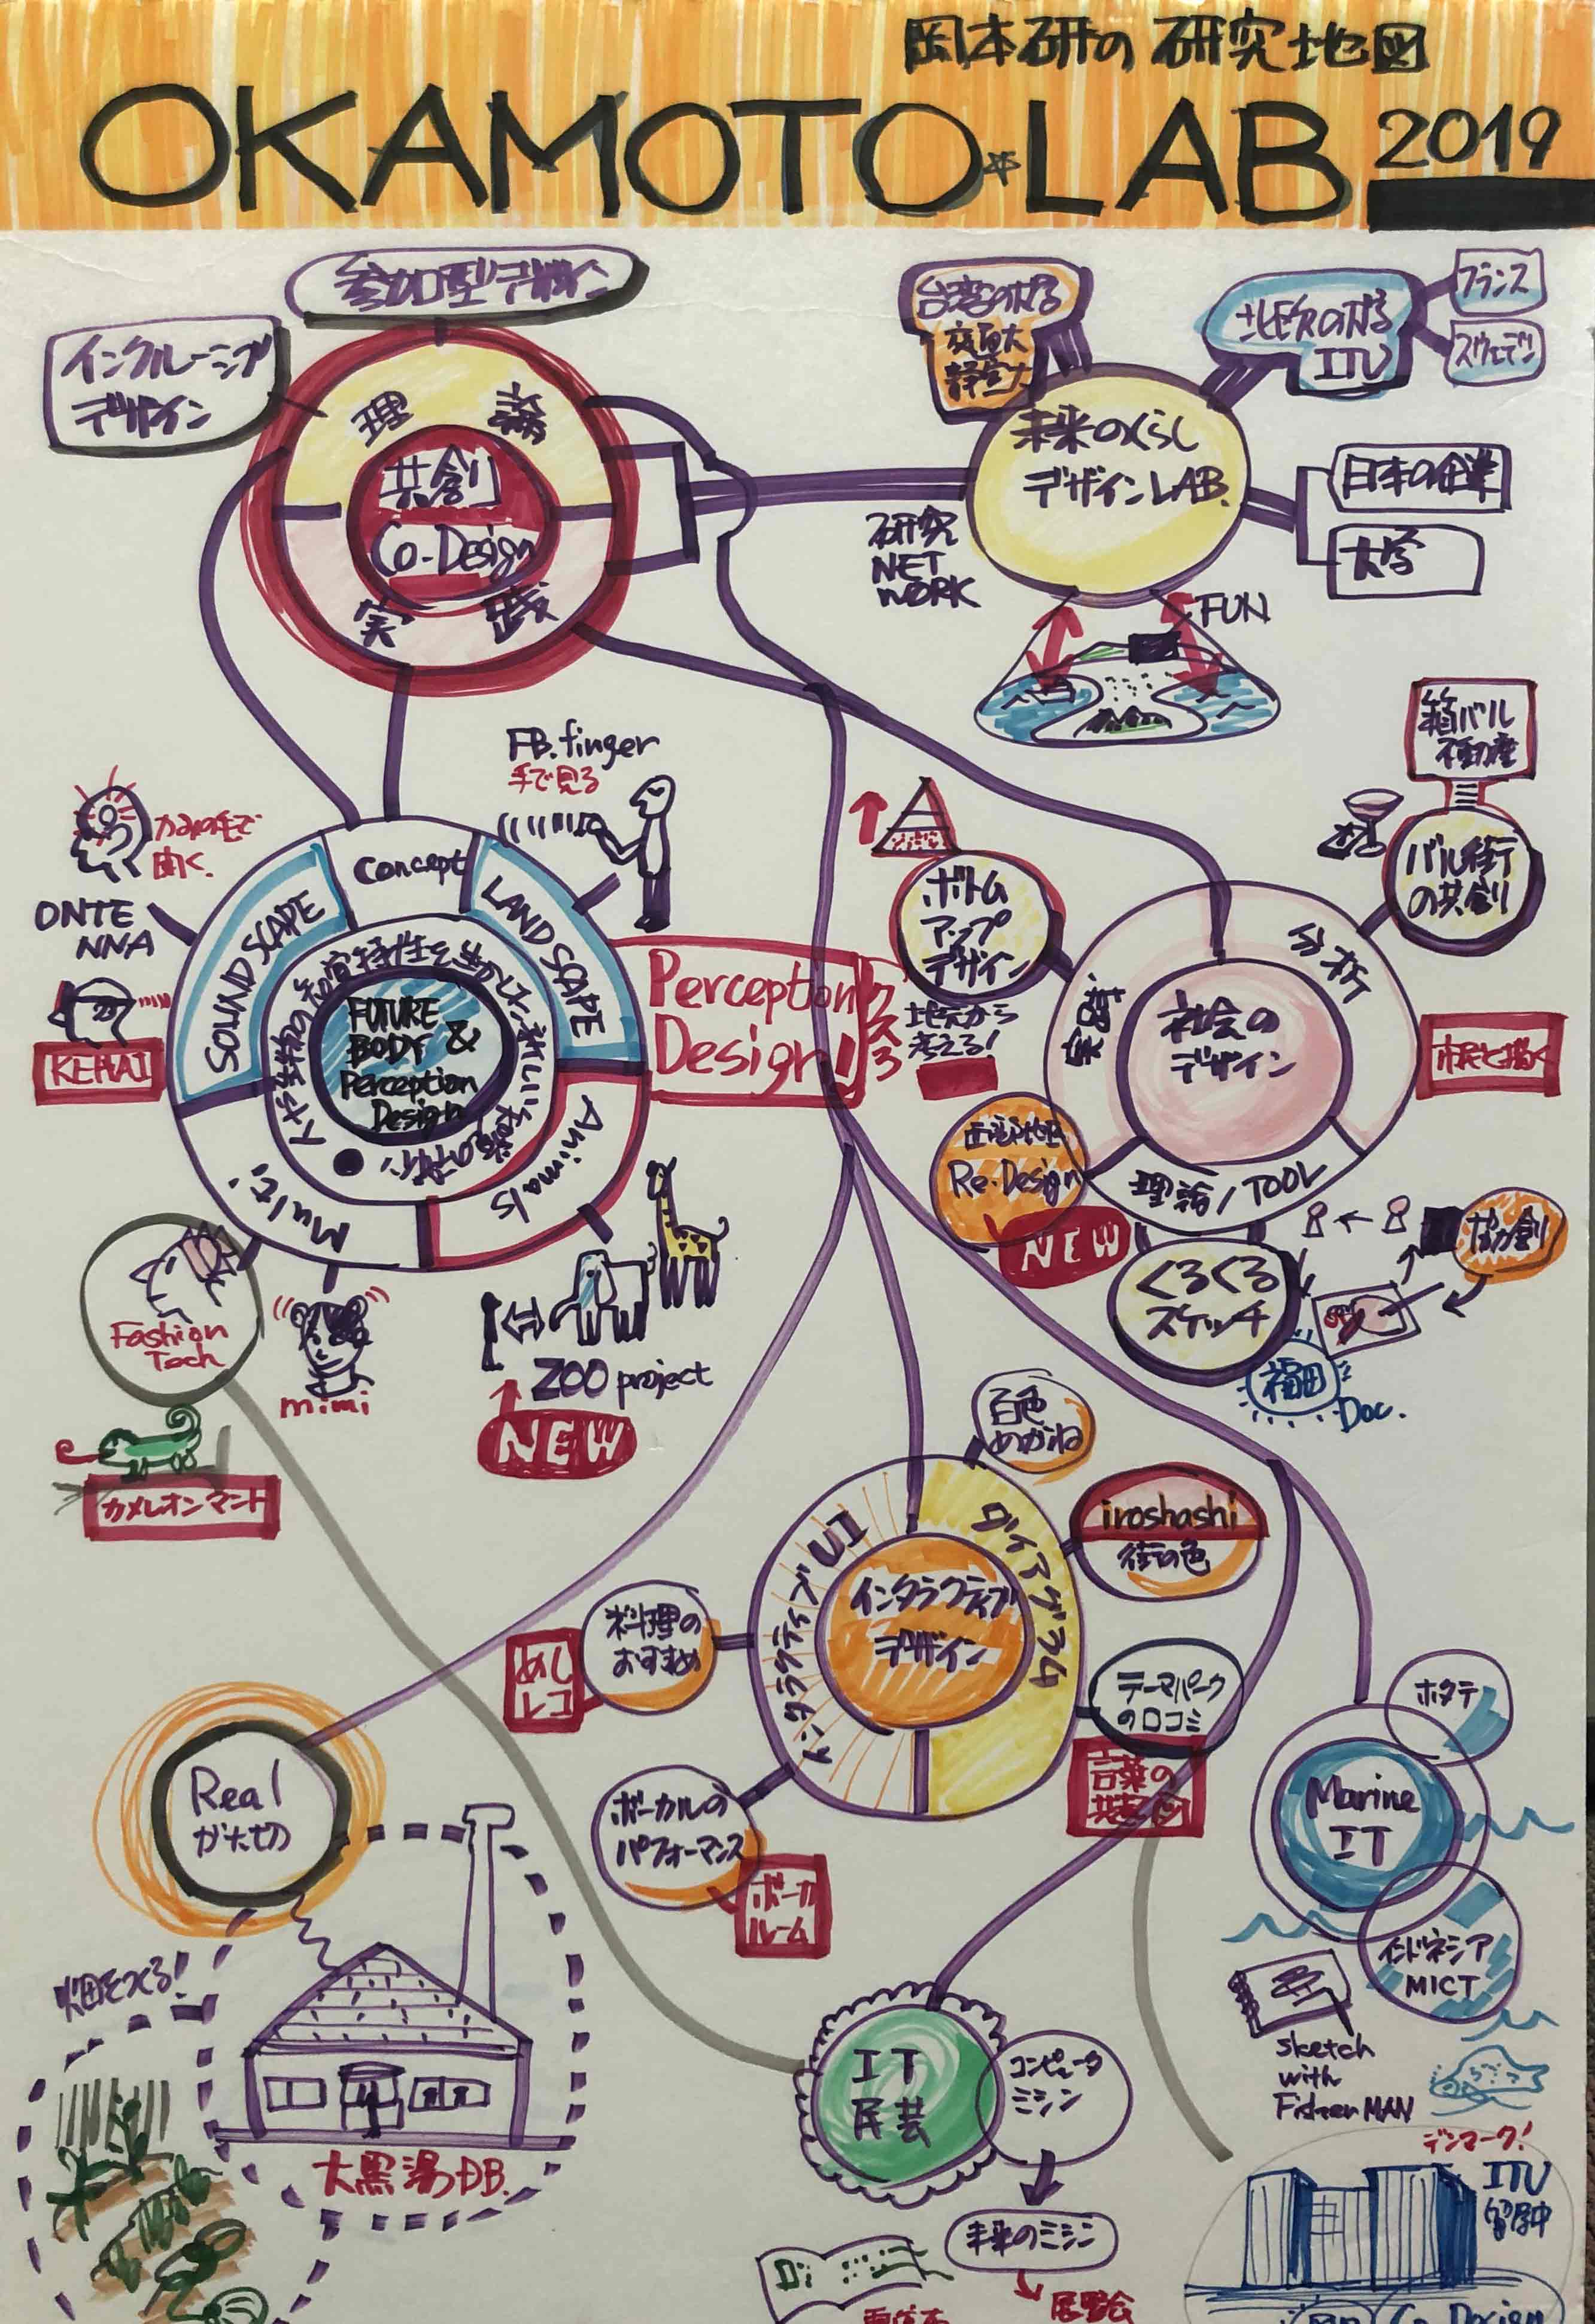 岡本研の研究地図
OKAMOTO*LAB 2019
参加型デザイン
インクルーシブ
デザイン
理論
共創
Co-Design
実践
台湾のカタチ
北欧のカタチ
ITU
フランス
スウェデン
未来のくらし
デザインLAB.
日本の企業
大学
研究
NET
WORK
FUN
箱バル
不動産
バル街
の共創
FB.finger
手で見る
かみの毛で
聞く.
ONTE
NNA
KEHAI
SOUND SCAPE
Concept
LAND SCAPE
Animals
Multi.
FUTURE
BODY &
Perception
Design
Perception
Design!
ボトム
アップ
デザイン
地元から
考える!
分析
実践
理論/TOOL
社会の
デザイン
市民と描く
西部地区
Re-Design
NEW
くるくる
スケッチ
協創
福田
Doc.
Fashion
Tech
カメレオンマント
mimi
ZOO project
NEW
百色
めがね
iroshashi
街の色
インタラクティブUI
ダイアグラム
インタラクティブ
デザイン
料理の
おすすめ
めし
レコ
テーマパーク
の口コミ
言葉の
ボーカルの
パフォーマンス
ボーカ
ルーム
Real
かたち
畑をつくる!
大黒湯DB.
ホタテ
Marine
IT
インドネシア
MICT
sketch
with
FisherMAN
IT
民芸
コンピュータ
ミシン
未来のミシン
展覧会
デンマーク!
ITU
留学中
Co-Design